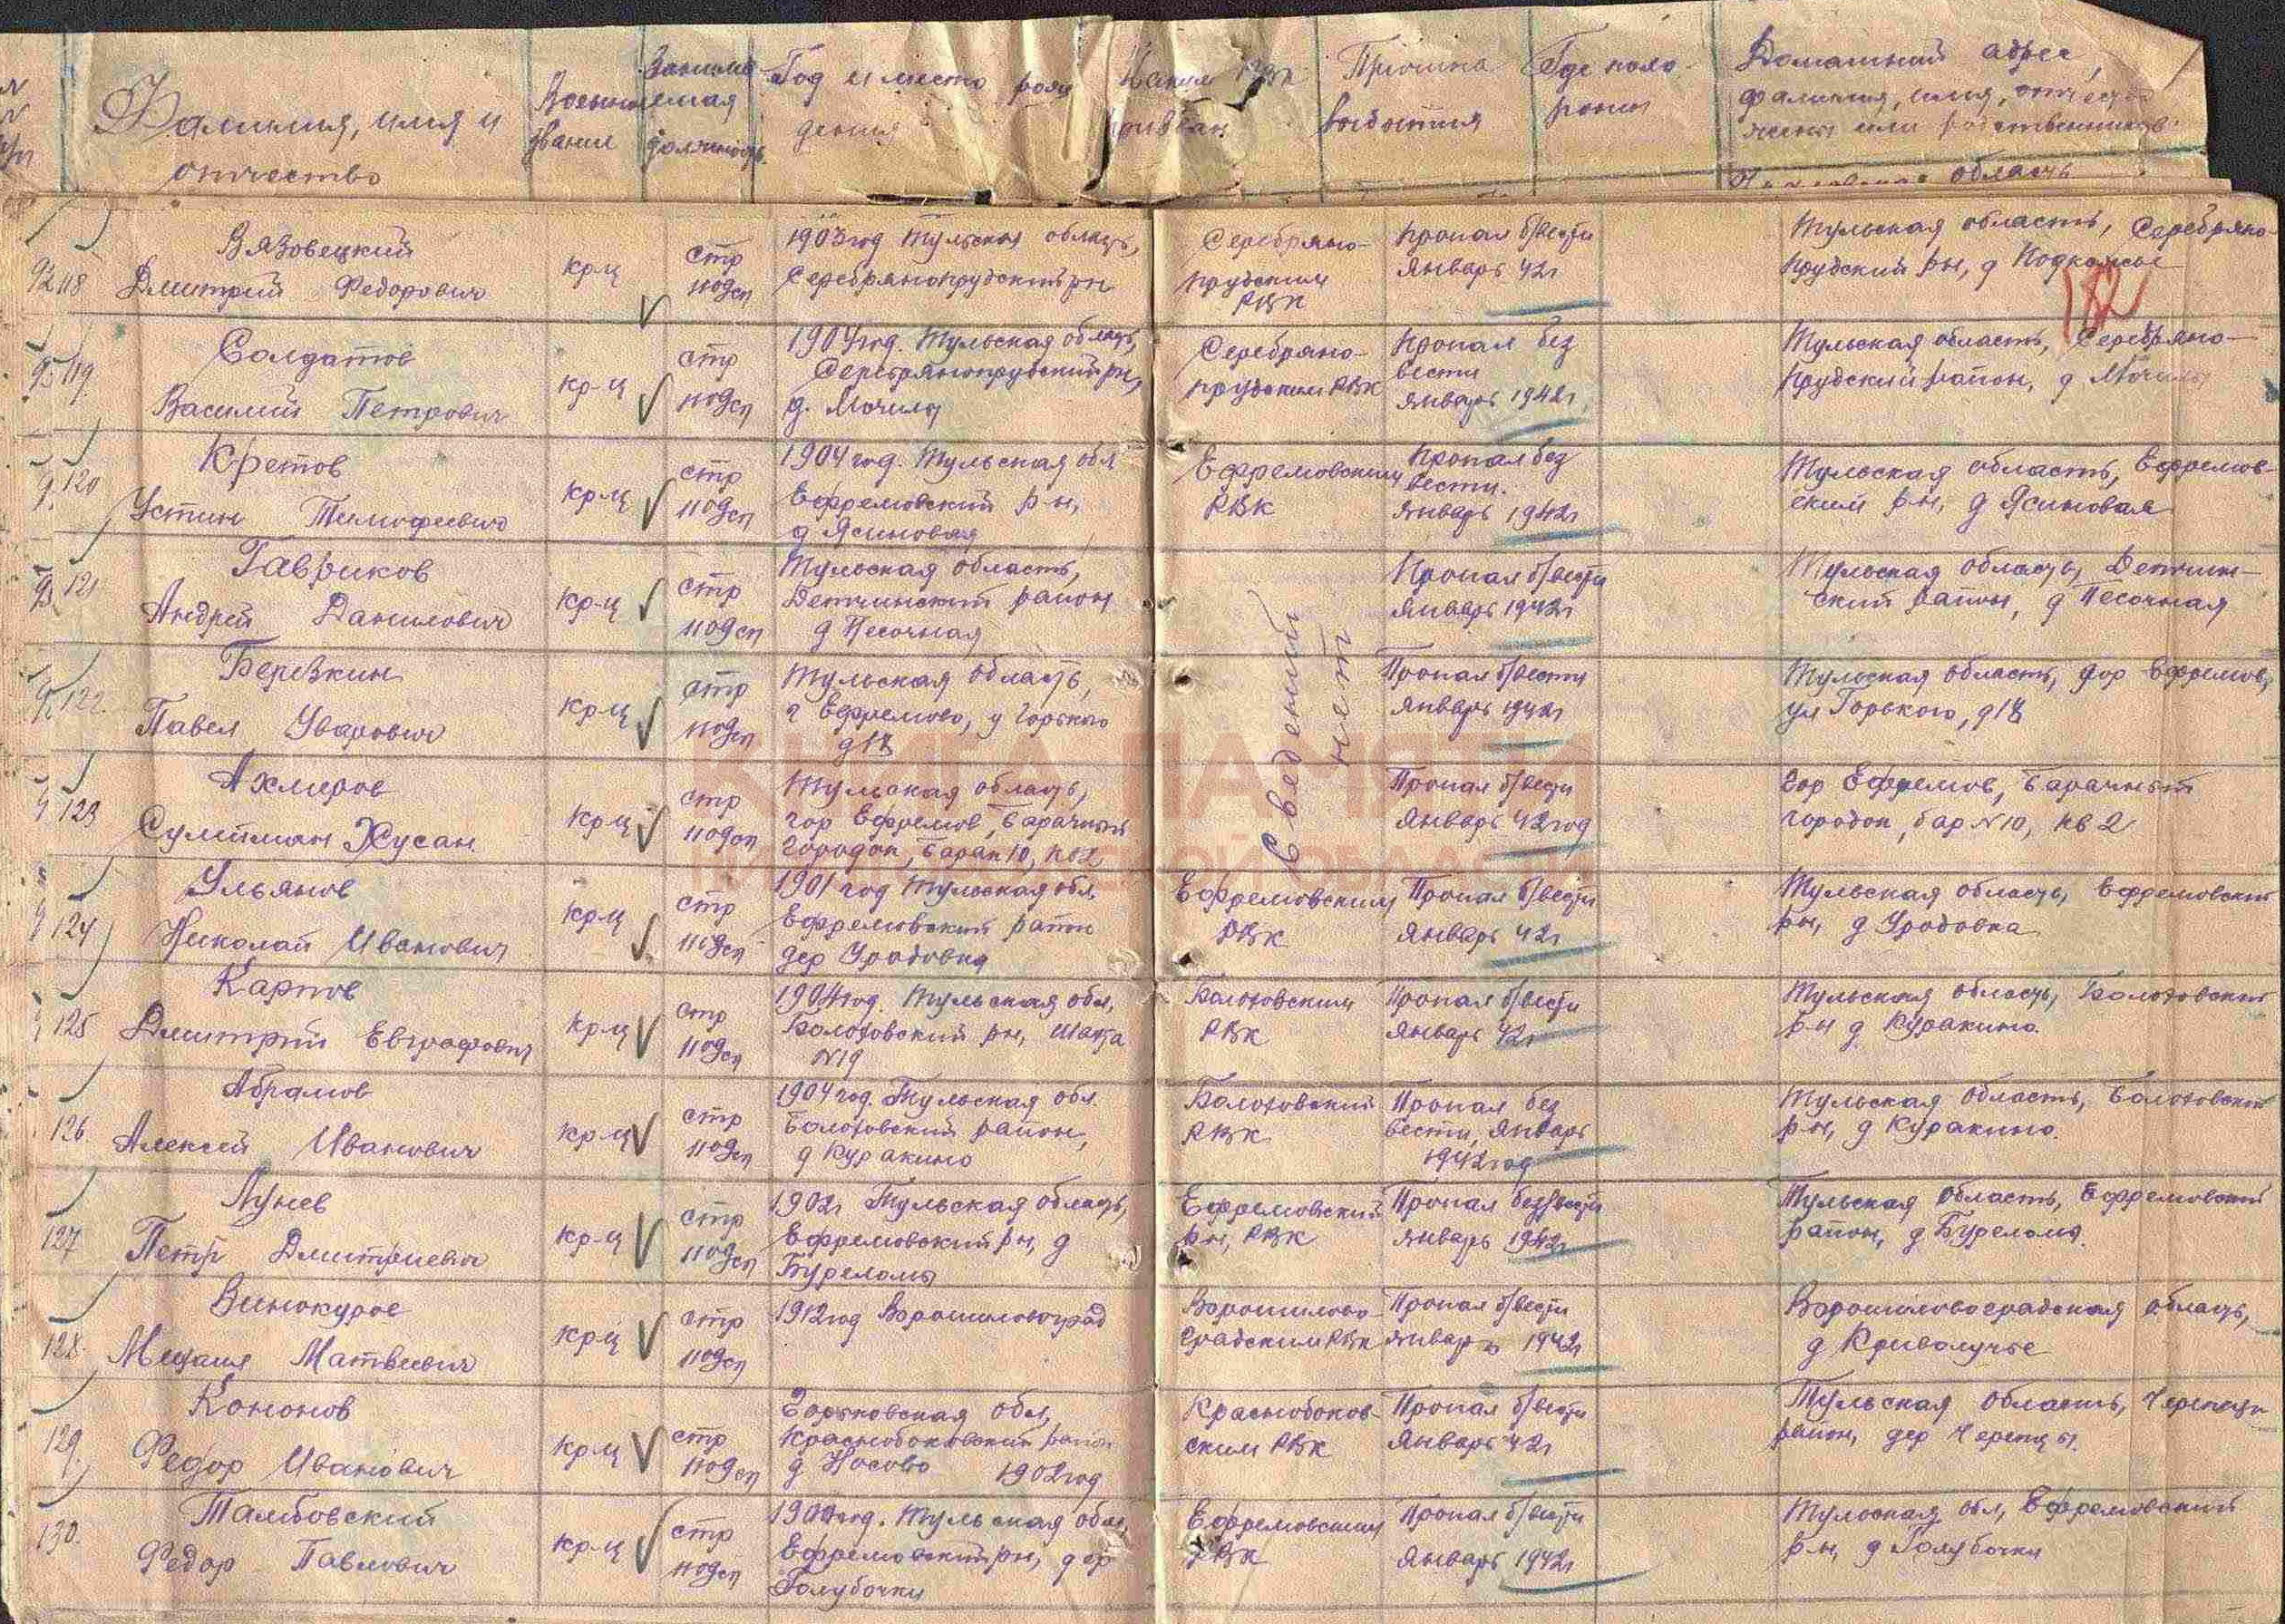 Фамилия, имя и
отчество
Военное
звание
Занима
емая
должность
Год и место рож
дения
Каким РВК
призван
Причина
выбытия
Где похо-
ронен
Домашний адрес,
фамилия, имя, отчество
жены или родственников
область
118
Вязовецкий
Дмитрий Федорович
кр-ц
стр
1109сп
1903 год Тульская область,
Серебрянопрудский рн
Серебряно-
прудским
РВК
Пропал б/вести
Январь 42г
Тульская область, Серебряно-
прудский рн, д Подхожее
182
119.
Солдатов
Василий Петрович
кр-ц
стр
1109сп
1904 год. Тульская область,
Серебрянопрудский рн,
д. Мочилы
Серебряно-
прудским РВК
Пропал без
вести
январь 1942г
Тульская область, Серебряно-
прудский район, д Мочилы
120
Кретов
Устин Тимофеевич
кр-ц
стр
1109сп
1904 год. Тульская обл
Ефремовский р-н,
д Ясиновая
Ефремовским
РВК
Пропал без
вести.
январь 1942г
Тульская область, Ефремов-
ский р-н, д Ясиновая
121
Гавриков
Андрей Данилович
кр-ц
стр
1109сп
Тульская область,
Детчинский район
д Песочная
Сведений
нет
Пропал б/вести
январь 1942г
Тульская область, Детчин-
ский район, д Песочная
122.
Березкин
Павел Уварович
кр-ц
стр
1109сп
Тульская область,
г Ефремово, у Горького
Пропал б/вести
январь 1942г
Тульская область, гор Ефремов,
ул Горького,
123
Ахмеров
Сулиман Хусан
кр-ц
стр
1109сп
Тульская область,
гор Ефремов, Барачный
городок, барак 10, кв 2
Пропал б/вести
Январь 42 год
Гор Ефремов, Барачный
городок, бар №10, кв 2
124
Ульянов
Николай Иванович
кр-ц
стр
1109сп
1901 год Тульская обл,
Ефремовский район
дер Уродовка
Ефремовским
РВК
Пропал б/вести
Январь 42г
Тульская область, Ефремовский
рн, д Уродовка
125
Карпов
Дмитрий Евграфович
кр-ц
стр
1109сп
1904 год. Тульская обл,
Болоховский рн, Шахта
№19
Болоховским
РВК
Пропал б/вести
январь 42г
Тульская область, Болоховский
р-н д Куракино.
126
Абрамов
Алексей Иванович
кр-ц
стр
1109сп
1904 год. Тульская обл.
Болоховский район,
д Куракино
Болоховский
РВК
Пропал без
вести, январь
1942 год
Тульская область, Болоховский
р-н, д Куракино.
127
Лунев
Петр Дмитриевич
кр-ц
стр
1109сп
1902г Тульская область,
Ефремовский рн, д
Буреломы
Ефремовский
рн, РВК
Пропал без/вести
январь 1942г
Тульская область, Ефремовский
район, д Буреломы.
128.
Винокуров
Михаил Матвеевич
кр-ц
стр
1109сп
1912 год Ворошиловоград
Ворошилово-
градским РВК
Пропал б/вести
январь 1942г
Ворошиловоградская область,
д Криволучье
129.
Кононов
Федор Иванович
кр-ц
стр
1109сп
Горьковская обл,
Краснобоковский район
д Носово 1902 год
Краснобоков-
ским РВК
Пропал б/вести
Январь 42г
Тульская область,
район, дер
130.
Тамбовский
Федор Павлович
кр-ц
стр
1109сп
год. Тульская обл,
Ефремовский рн, дер
Голубочки
Ефремовским
РВК
Пропал б/вести
Январь 1942г
Тульская обл, Ефремовский
р-н, д Голубочки
КНИГА ПАМЯТИ